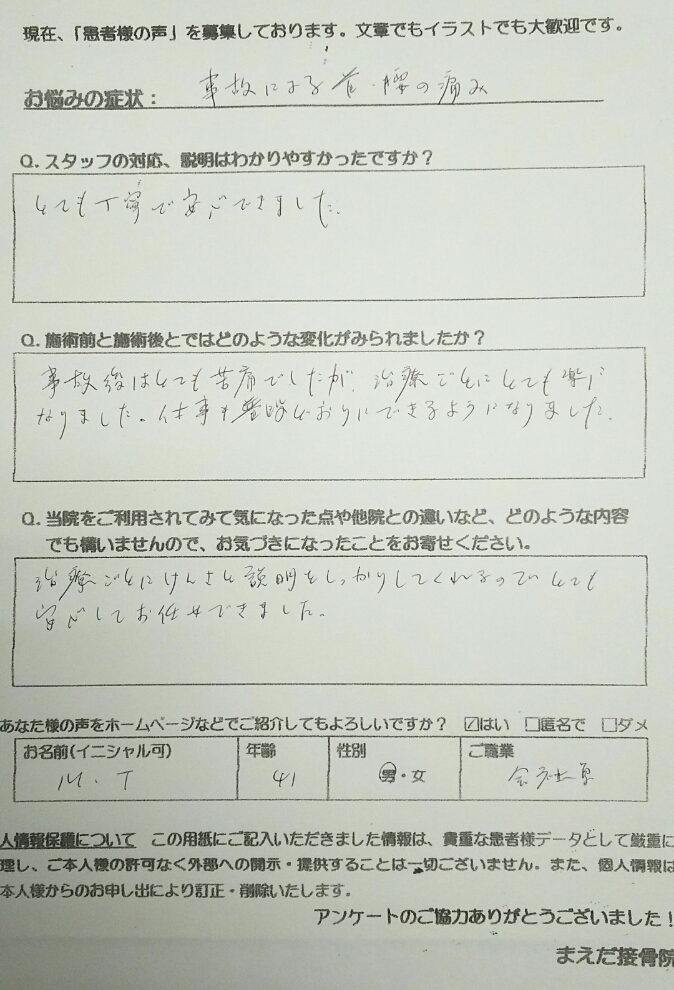 現在、「患者様の声」を募集しております。文章でもイラストでも大歓迎です。
お悩みの症状： 事故による首・腰の痛み
Q. スタッフの対応、説明はわかりやすかったですか？
とても丁寧で安心できました。
Q. 施術前と施術後とではどのような変化がみられましたか？
事故後はとても苦痛でしたが、治療ごとにとても楽に
なりました。仕事も普段どおりにできるようになりました。
Q. 当院をご利用されてみて気になった点や他院との違いなど、どのような内容
でも構いませんので、お気づきになったことをお寄せください。
治療ごとにけんさと説明をしっかりしてくれるのでとても
安心してお任せできました。
あなた様の声をホームページなどでご紹介してもよろしいですか？ ☑はい □匿名で □ダメ
お名前(イニシャル可) 年齢 性別 ご職業
M・T 41 男・女 会社員
人情報保護について この用紙にご記入いただきました情報は、貴重な患者様データとして厳重に
理し、ご本人様の許可なく外部への開示・提供することは一切ございません。また、個人情報は
本人様からのお申し出により訂正・削除いたします。
アンケートのご協力ありがとうございました！
まえだ接骨院